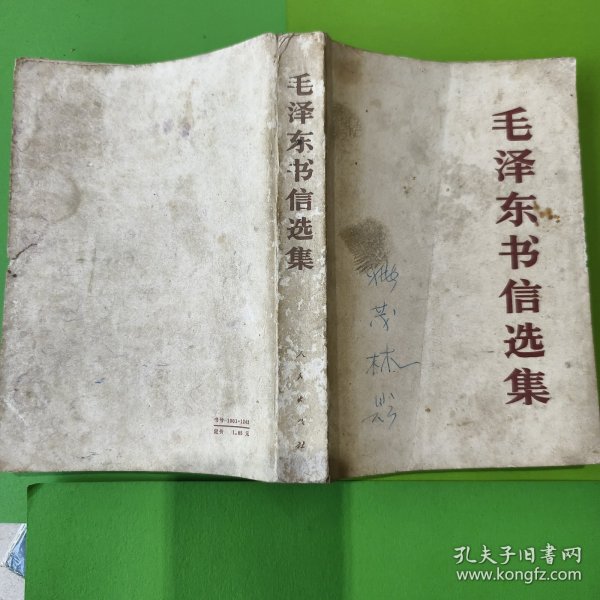 毛泽东书信选集
毛泽东书信选集
人民出版社
书号 1001·1243
定价 1.85 元
茂
林
孔夫子旧书网
www.kongfz.com